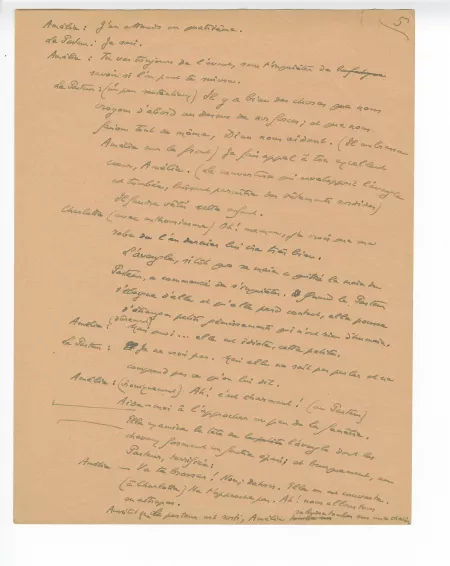 5
Amélie : J'en attends un quatrième.
Le Pasteur : Je sais.
Amélie : Tu vas toujours de l'avant, sans t'inquiéter de
savoir si l'on peut te suivre.
Le Pasteur : (un peu sentencieux) Il y a bien des choses que nous
croyons d'abord au dessus de nos forces ; et que nous
faisons tout de même, Dieu nous aidant. (Il embrasse
Amélie sur le front) Je fais appel à ton excellent
cœur, Amélie. (La couverture qui enveloppait l'aveugle
est tombée, laissant paraître des vêtements sordides)
Il faudra vêtir cette enfant.
Charlotte (avec enthousiasme) Ah! maman, je crois que ma
robe de l'an dernier lui ira très bien.
L'aveugle, sitôt que sa main a quitté la main du
Pasteur, a commencé de s'inquiéter. Quand le Pasteur
s'éloigne d'elle et qu'elle perd contact, elle pousse
d'étranges petits gémissements qui n'ont rien d'humain.
Amélie : Mais quoi... elle est idiote, cette petite.
Le Pasteur : Je ne crois pas. Mais elle ne sait pas parler et ne
comprend pas ce qu'on lui dit.
Amélie : Ah! c'est charmant! (au Pasteur)
Aidez-moi à l'approcher un peu de la fenêtre.
Elle examine la tête de l'aveugle dont les
cheveux forment un feutre épais ; et brusquement, au
Pasteur,
Amélie — Va te brosser! Dehors. Elle en est couverte.
(à Charlotte) Ne t'approche pas. Ah! nous allons tous
en attraper.
Aussitôt que le pasteur est sorti, Amélie